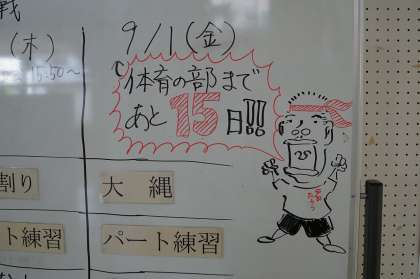 戦
(木)
15:50~
9/1(金)
体育の部まで
あと15日!!
割り
大縄
ト練習
パート練習